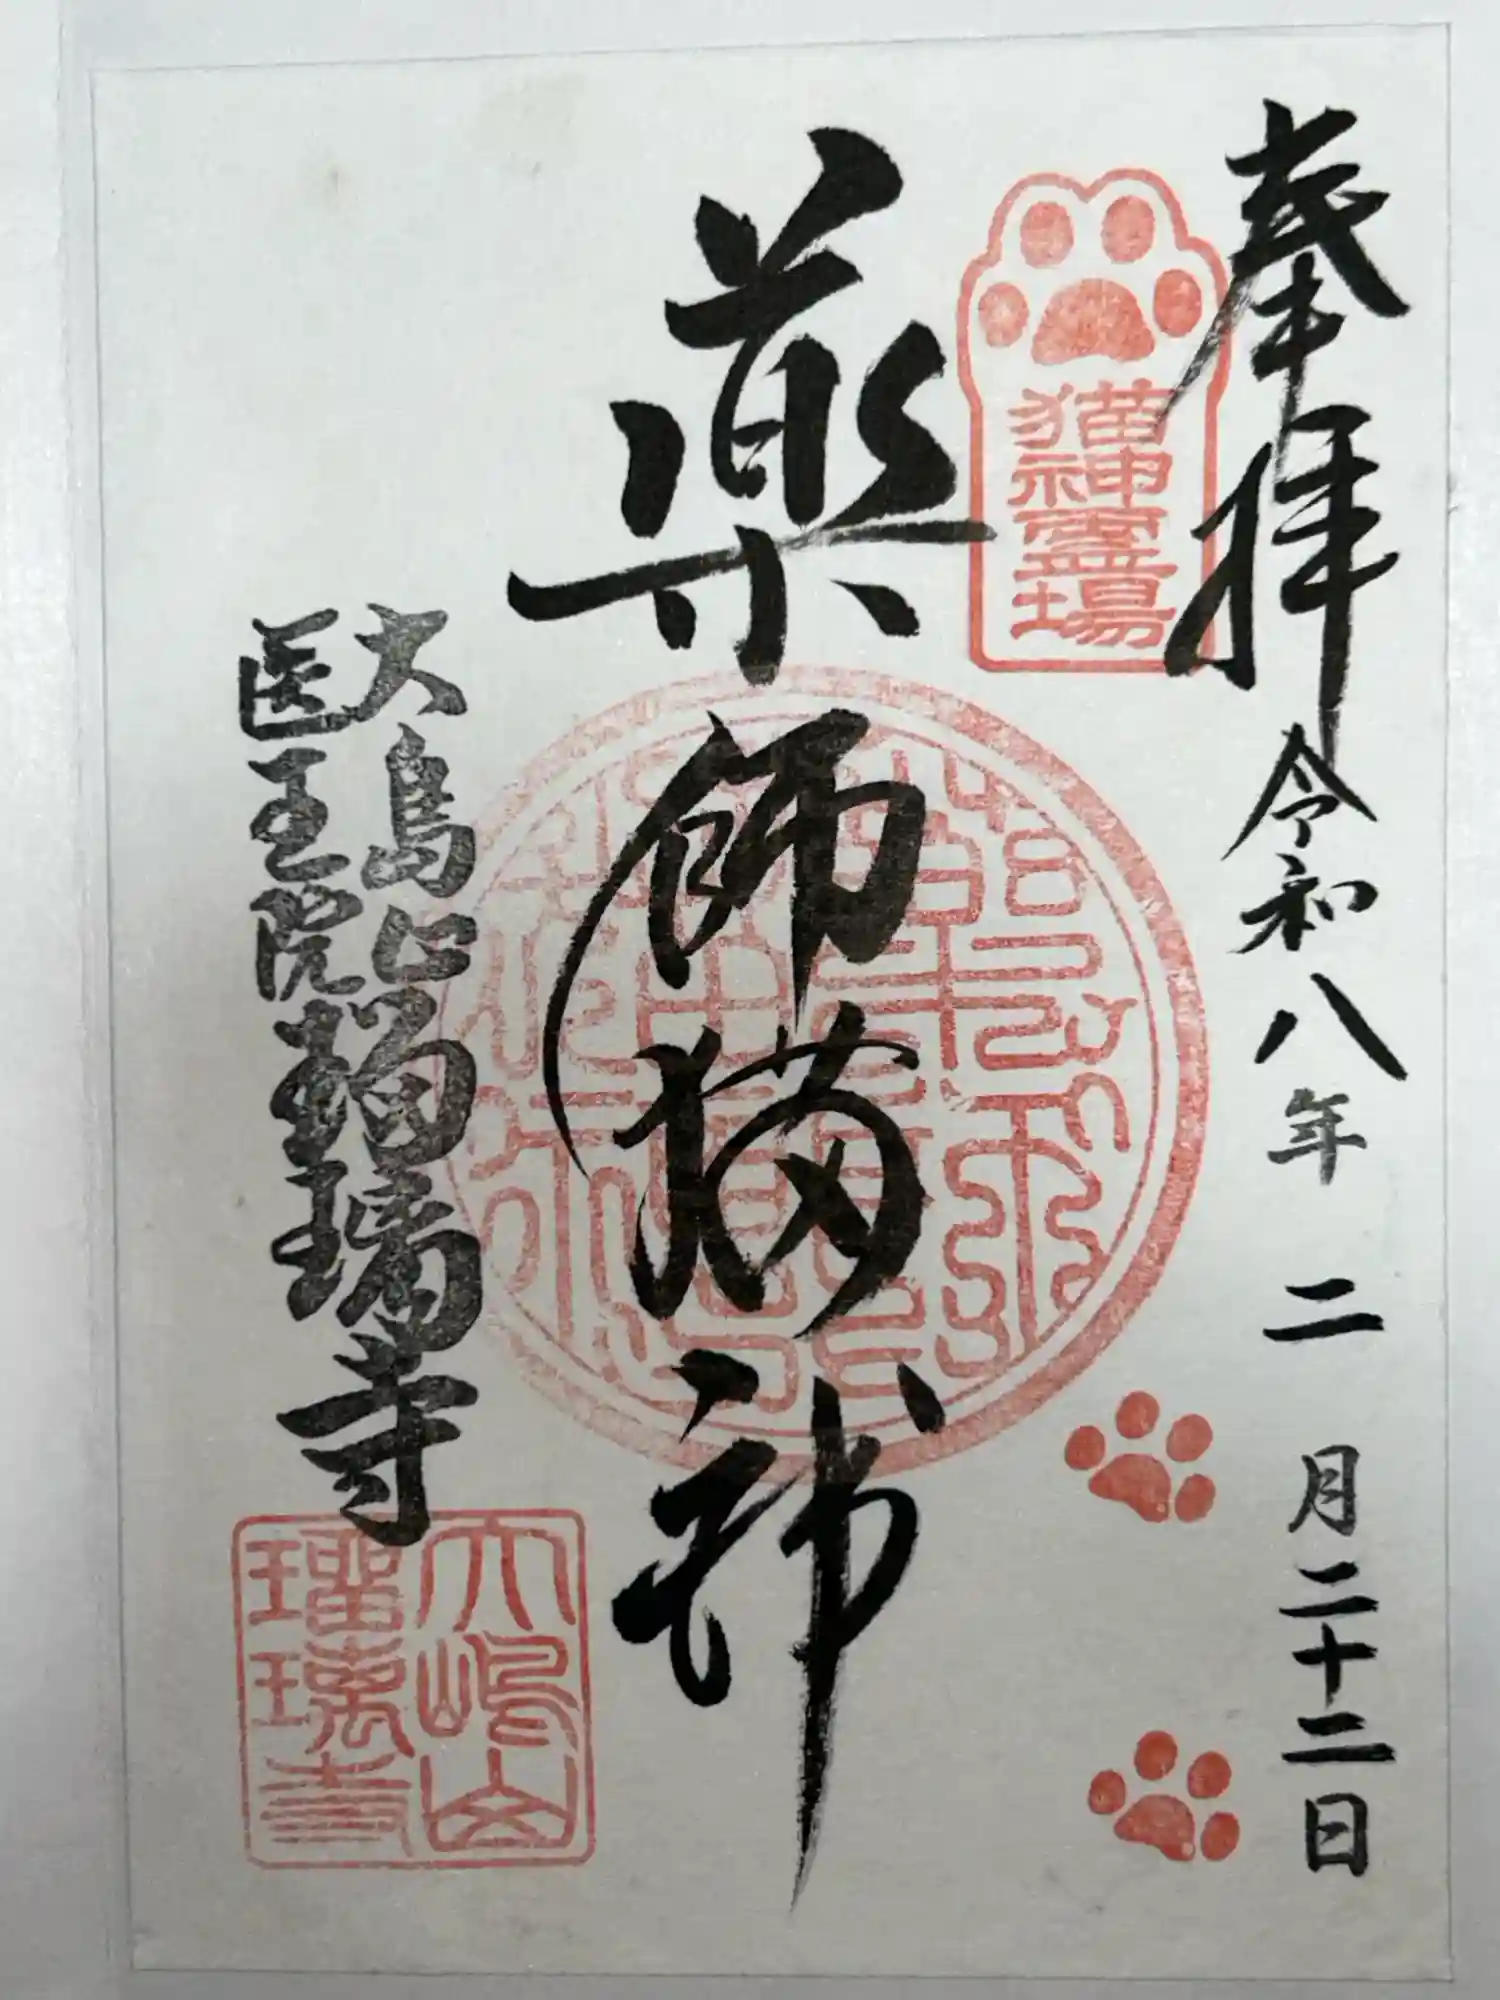 奉拝
令和八年二月二十二日
猫神
霊場
薬師猫神
大島山
医王院
瑠璃寺
大嶋山
瑠璃寺